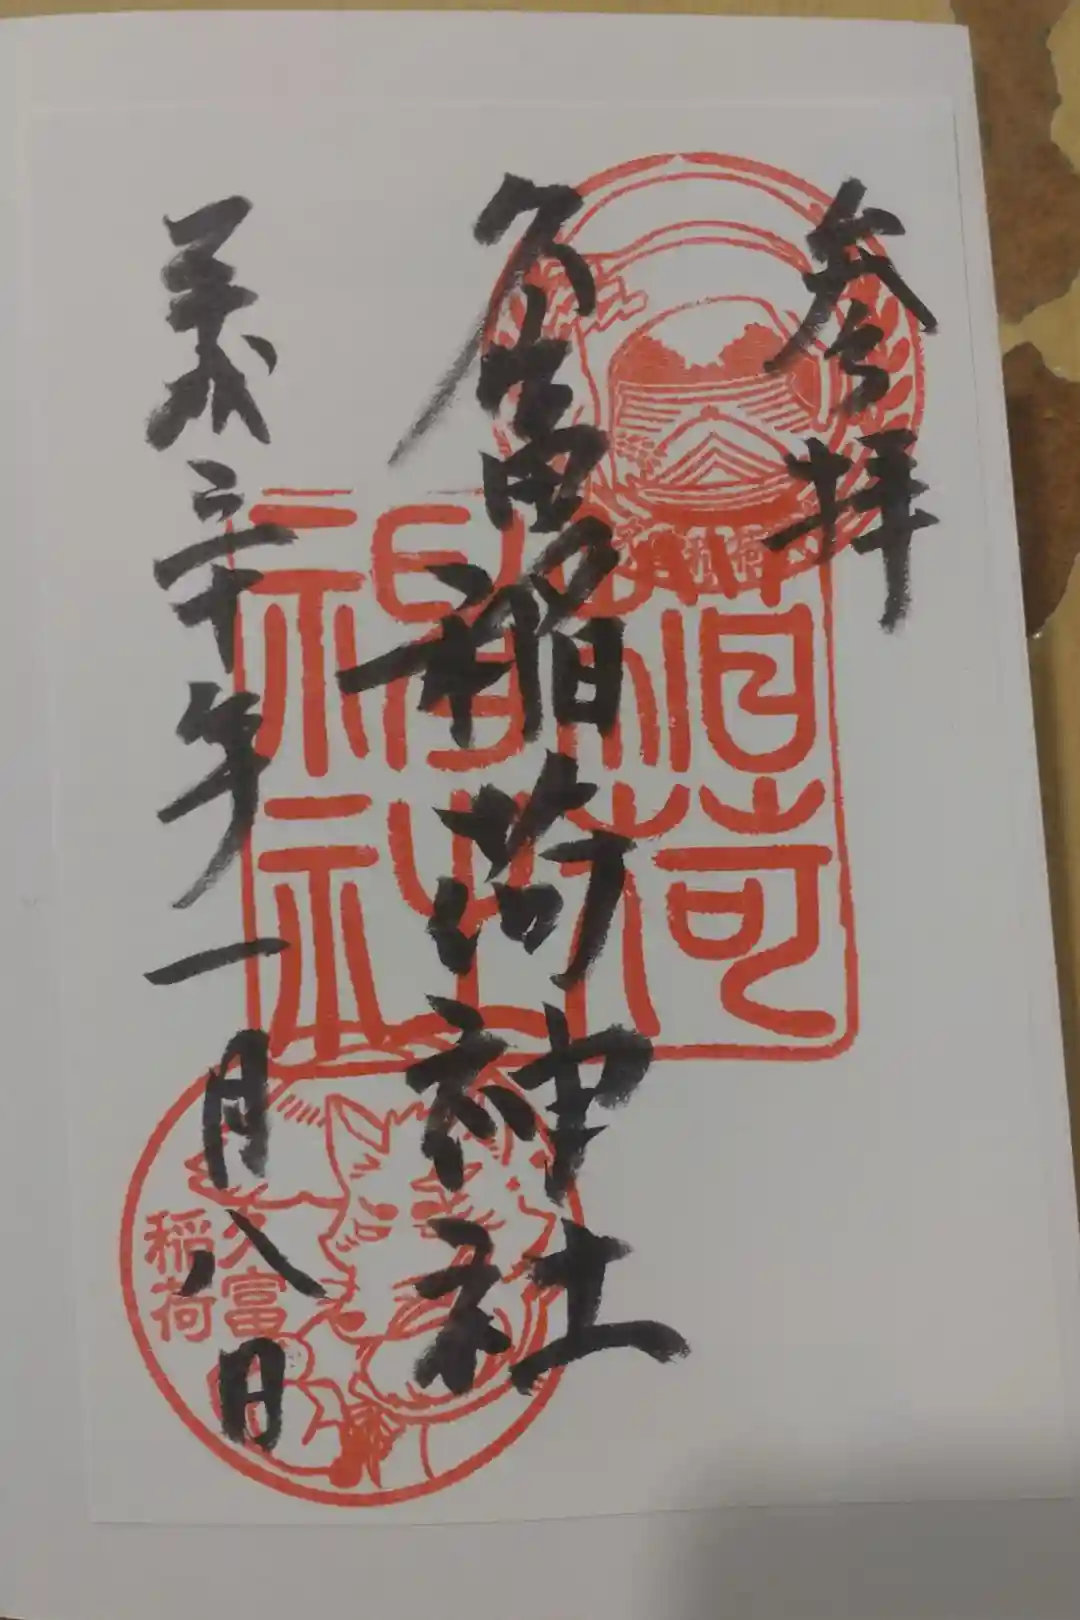 参拝
久富稲荷神社
平成三十年一月八日
稲荷
神社
久富
稲荷